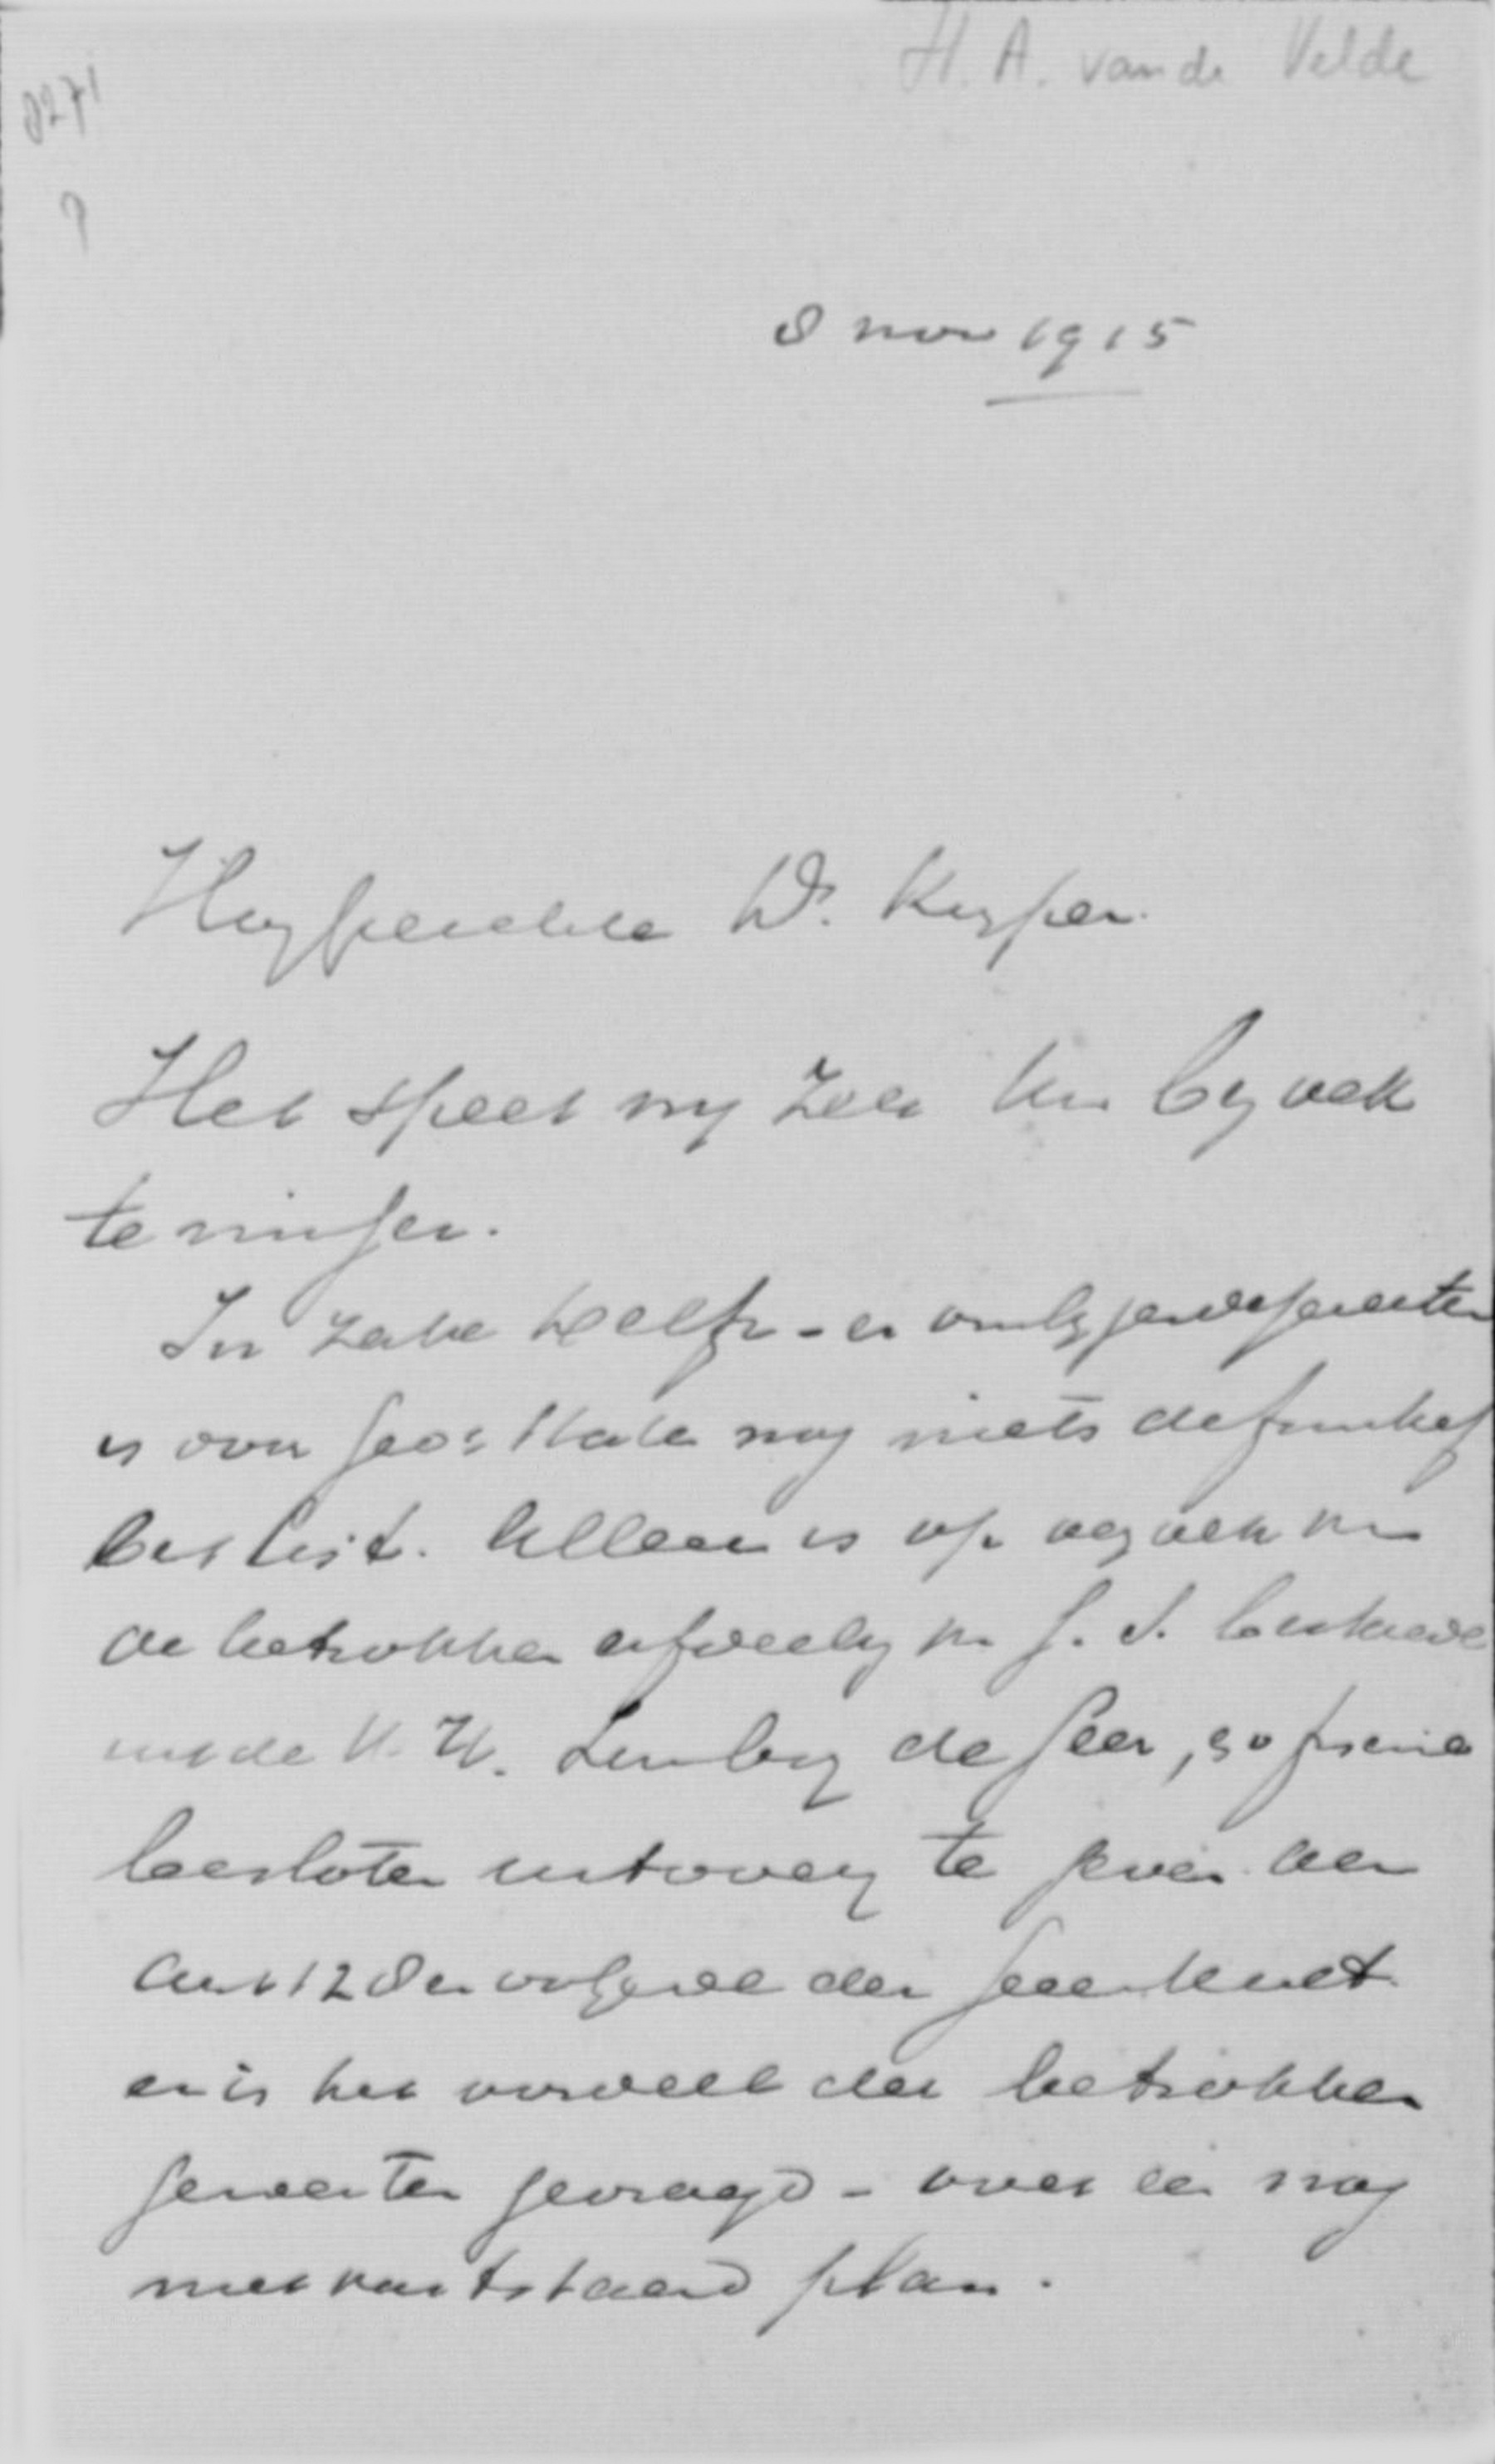 H. A. van de Velde
8271
8 nov 1915
Hooggeachte Dr. Kuyper.
Het speet mij zeer Uw bezoek
te missen.
In zake Delft - en omliggende gemeenten
is over Ged. Staten nog niets definitief
beslist. Alleen is op verzoek van
de betrokken afdeeling van G. S. bestaande
uit de H. H.
besloten uitvoering te geven aan
Art 128 en volgende der Gemeentewet
en is het oordeel der betrokken
gemeenten gevraagd - over een nog
niet vaststaand plan.